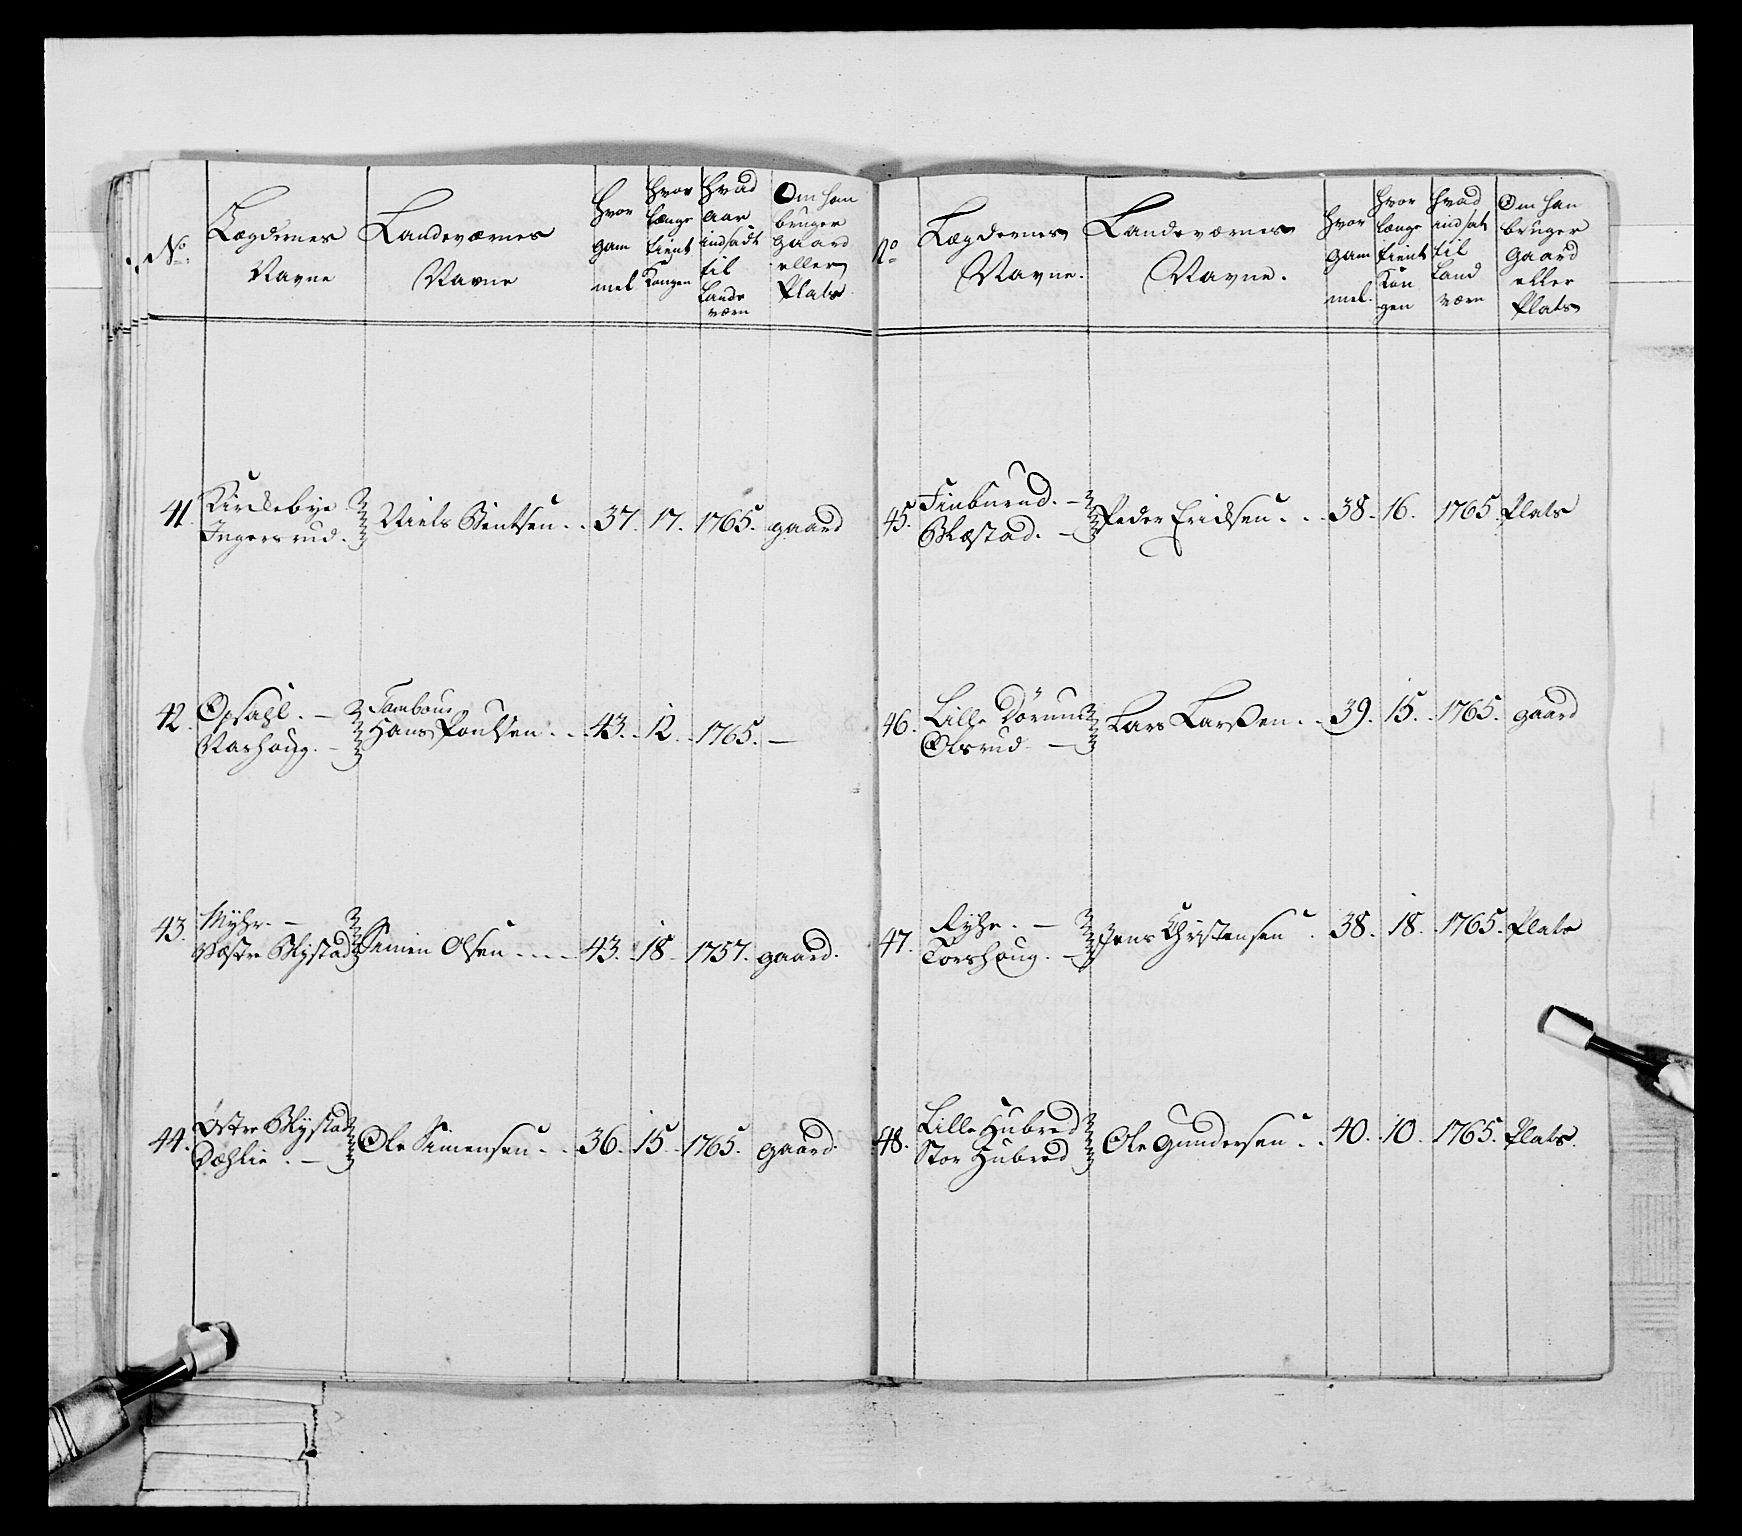 No:
Lægdernes
Navne
Landeværnes
Navne
Hvor
gam
mel
Hvor
længe
tient
Kongen
Hvad
aar
indsadt
til
Lands
værn
Om han
bruger
gaard
eller
Plats
41.
Kirckebye
Ingersrud.
Niels Bentsen . . 37. 17. 1765. gaard
42.
Opsahl. —
Narhoug. —
Tambour
Hans Poulsen . . 43. 12. 1765. —
43.
Myhr. —
Westre Skystad
Simen Olsen . . . . 43. 18. 1757. gaard.
44.
Østre Skystad
Dæhlie. —
Ole Simensen . . 36. 15. 1765. gaard.
No
Lægdernes
Navne.
Landeværnes
Navne.
Hvor
gam
mel.
Hvor
længe
tient
Kon
gen
Hvad
indsat
til
Land
værn
Om han
bruger
gaard
eller
Plats
45.
—
—
Peder Ericksen . . . 38. 16. 1765. Plats
46.
Lille
Olsrud. —
Lars Larsen . . 39. 15. 1765. gaard
47.
Ryhe. —
Torshoug. —
Jens Christensen . 38. 18. 1765. Plats
48.
Lille Hubred
Stor Hubred
Ole Gundersen . . 40. 10. 1765. Plats.